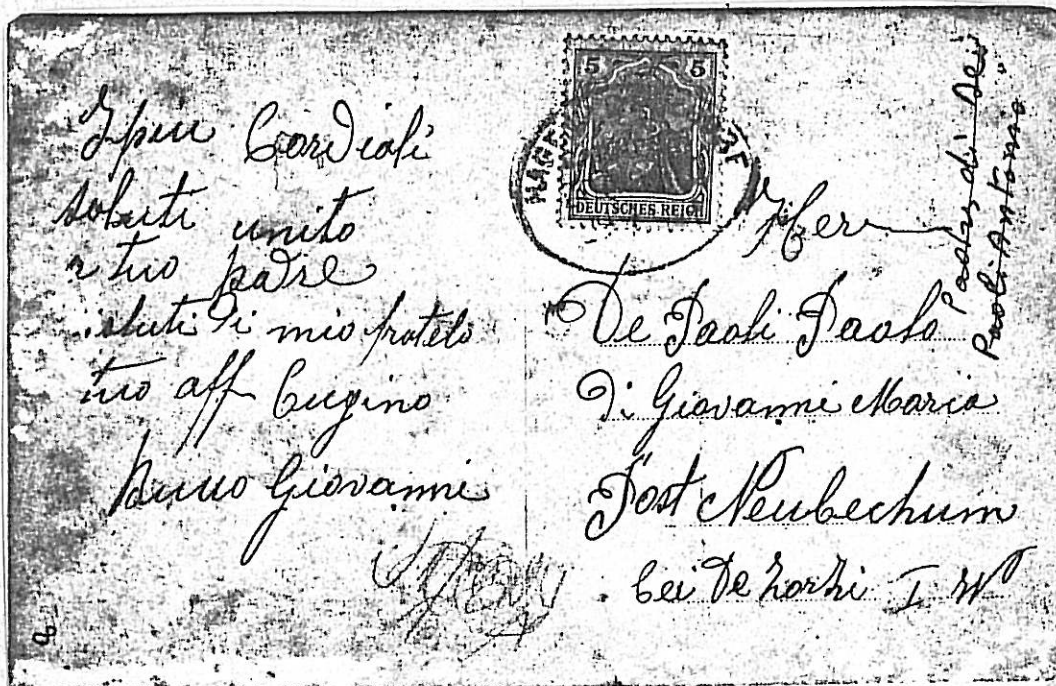 Cordiali
saluti unito
a tuo padre
saluti di mio fratelo
tuo aff Cugino
Giovanni
5 5
DEUTSCHES REICH
HAGE
Herr
De Paoli Paolo
di Giovanni Maria
Post Neubechum
bei De Zorzi I W
di Dei
Paoli Antonio